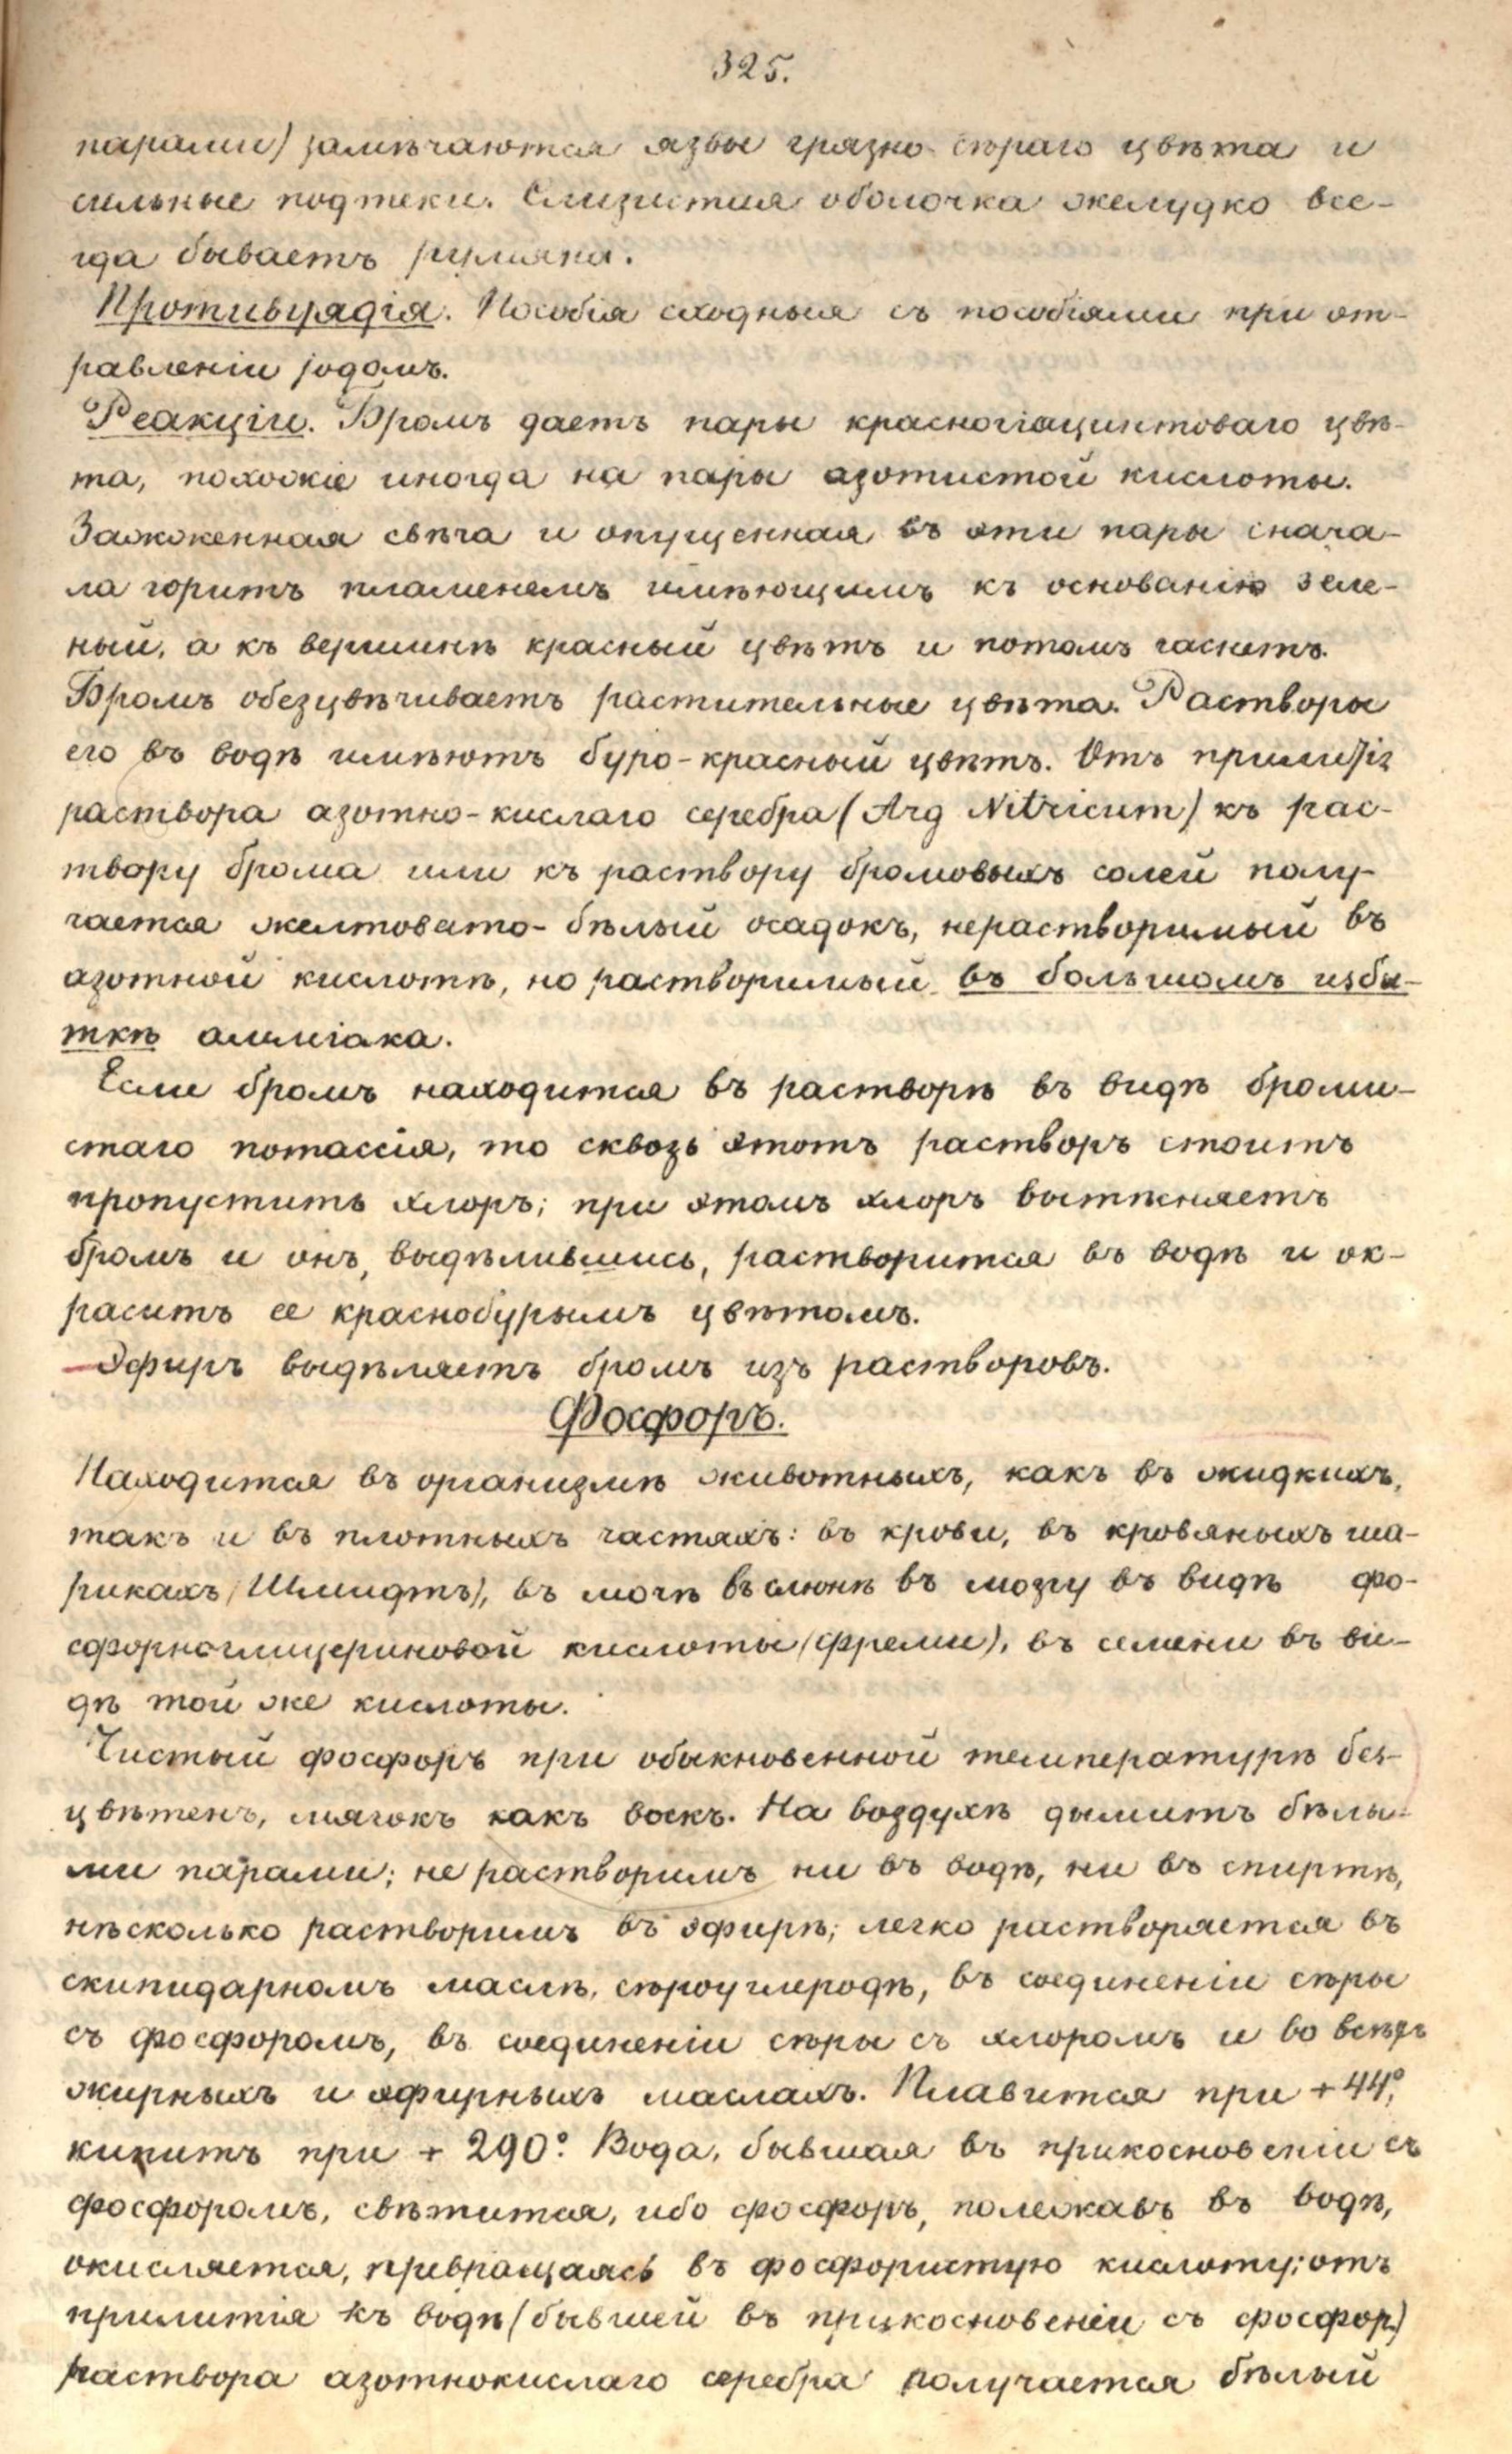 325.
парами) замѣчаются язвы грязно-сѣраго цвѣта и
сильные подтеки. Слизистая оболочка желудка все-
гда бываетъ румяна.
Противуядія. Пособія сходныя съ пособіями при от-
равленіи jодомъ.
Реакціи. Бромъ даетъ пары красногіацинтоваго цвѣ-
та, похожіе иногда на пары азотистой кислоты.
Зажженная свѣча и опущенная въ эти пары снача-
ла горитъ пламенемъ имѣющимъ къ основанію зеле-
ный, а къ вершинѣ красный цвѣтъ и потомъ гаснетъ.
Бромъ обезцвѣчиваетъ растительные цвѣта. Растворы
его въ водѣ имѣютъ буро-красный цвѣтъ. Отъ прилитія
раствора азотно-кислаго серебра (Arg Nitricum) къ рас-
твору брома или къ раствору бромовыхъ солей полу-
чается желтовато-бѣлый осадокъ, нерастворимый въ
азотной кислотѣ, но растворимый въ большомъ избы-
ткѣ амміака.
Если бромъ находится въ растворѣ въ видѣ броми-
стаго потассія, то сквозь этотъ растворъ стоитъ
пропустить хлоръ; при этомъ хлоръ вытѣсняетъ
бромъ и онъ, выдѣлившись, растворится въ водѣ и ок-
раситъ ее краснобурымъ цвѣтомъ.
Эфиръ выдѣляетъ бромъ изъ растворовъ.
Фосфоръ.
Находится въ организмѣ животныхъ, какъ въ жидкихъ,
такъ и въ плотныхъ частяхъ: въ крови, въ кровяныхъ ша-
рикахъ (Шмидтъ), въ мочѣ въ слюнѣ въ мозгу въ видѣ фо-
сфорноглицериновой кислоты (Фреми), въ семени въ ви-
дѣ той же кислоты.
Чистый фосфоръ при обыкновенной температурѣ без-
цвѣтенъ, мягокъ какъ воскъ. На воздухѣ дымитъ бѣлы-
ми парами; не растворимъ ни въ водѣ, ни въ спиртѣ,
нѣсколько растворимъ въ эфирѣ; легко растворяется въ
скипидарномъ маслѣ, сѣроуглеродѣ, въ соединеніи сѣры
съ фосфоромъ, въ соединеніи сѣры съ хлоромъ и во всѣхъ
жирныхъ и эфирныхъ маслахъ. Плавится при +44°,
кипитъ при + 290°. Вода, бывшая въ прикосновеніи съ
фосфоромъ, свѣтится, ибо фосфоръ, полежавъ въ водѣ,
окисляется, превращаясь въ фосфористую кислоту; отъ
прилитія къ водѣ (бывшей въ прикосновеніи съ фосфор.)
раствора азотнокислаго серебра получается бѣлый